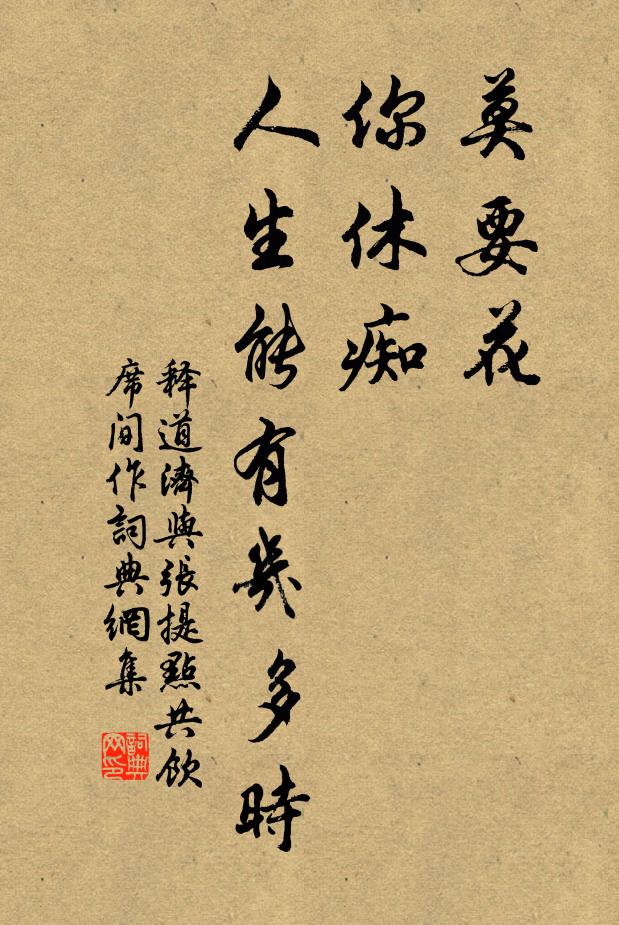 莫要花
你休痴
人生能有幾多時
释道濟與張提點共飲
席间作詞典網集
詞典
网印